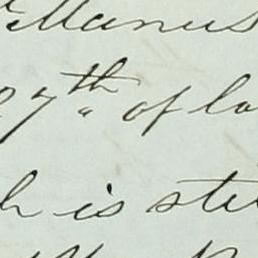 Manus
27th of la
h is ste